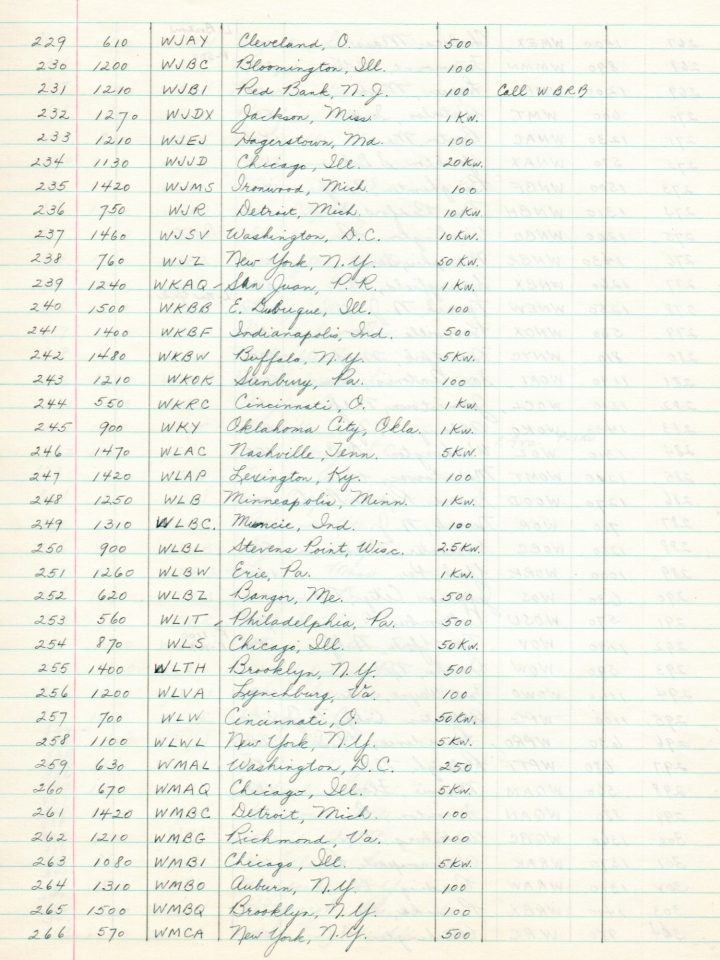 229 610 WJAY Cleveland, O. 500
230 1200 WJBC Bloomington, Ill. 100
231 1210 WJBI Red Bank, N.J. 100 Call WBRB
232 1270 WJDX Jackson, Miss 1 Kw.
233 1210 WJEJ Hagerstown, Md. 100
234 1130 WJJD Chicago, Ill. 20 Kw.
235 1420 WJMS Ironwood, Mich. 100
236 750 WJR Detroit, Mich. 10 Kw.
237 1460 WJSV Washington, D.C. 10 Kw.
238 760 WJZ New York, N.Y. 50 Kw.
239 1240 WKAQ - San Juan, P.R. 1 Kw.
240 1500 WKBB E. Dubuque, Ill. 100
241 1400 WKBF Indianapolis, Ind. 500
242 1480 WKBW Buffalo, N.Y. 5 Kw.
243 1210 WKOK Sunbury, Pa. 100
244 550 WKRC Cincinnati, O. 1 Kw.
245 900 WKY Oklahoma City, Okla. 1 Kw.
246 1470 WLAC Nashville, Tenn. 5 Kw.
247 1420 WLAP Lexington, Ky. 100
248 1250 WLB Minneapolis, Minn. 1 Kw.
249 1310 WLBC. Muncie, Ind. 100
250 900 WLBL Stevens Point, Wisc. 2.5 Kw.
251 1260 WLBW Erie, Pa. 1 Kw.
252 620 WLBZ Bangor, Me. 500
253 560 WLIT - Philadelphia, Pa. 500
254 870 WLS Chicago, Ill. 50 Kw.
255 1400 WLTH Brooklyn, N.Y. 500
256 1200 WLVA Lynchburg, Va. 100
257 700 WLW Cincinnati, O. 50 Kw.
258 1100 WLWL New York, N.Y. 5 Kw.
259 630 WMAL Washington, D.C. 250
260 670 WMAQ Chicago, Ill. 5 Kw.
261 1420 WMBC Detroit, Mich. 100
262 1210 WMBG Richmond, Va. 100
263 1080 WMBI Chicago, Ill. 5 Kw.
264 1310 WMBO Auburn, N.Y. 100
265 1500 WMBQ Brooklyn, N.Y. 100
266 570 WMCA New York, N.Y. 500